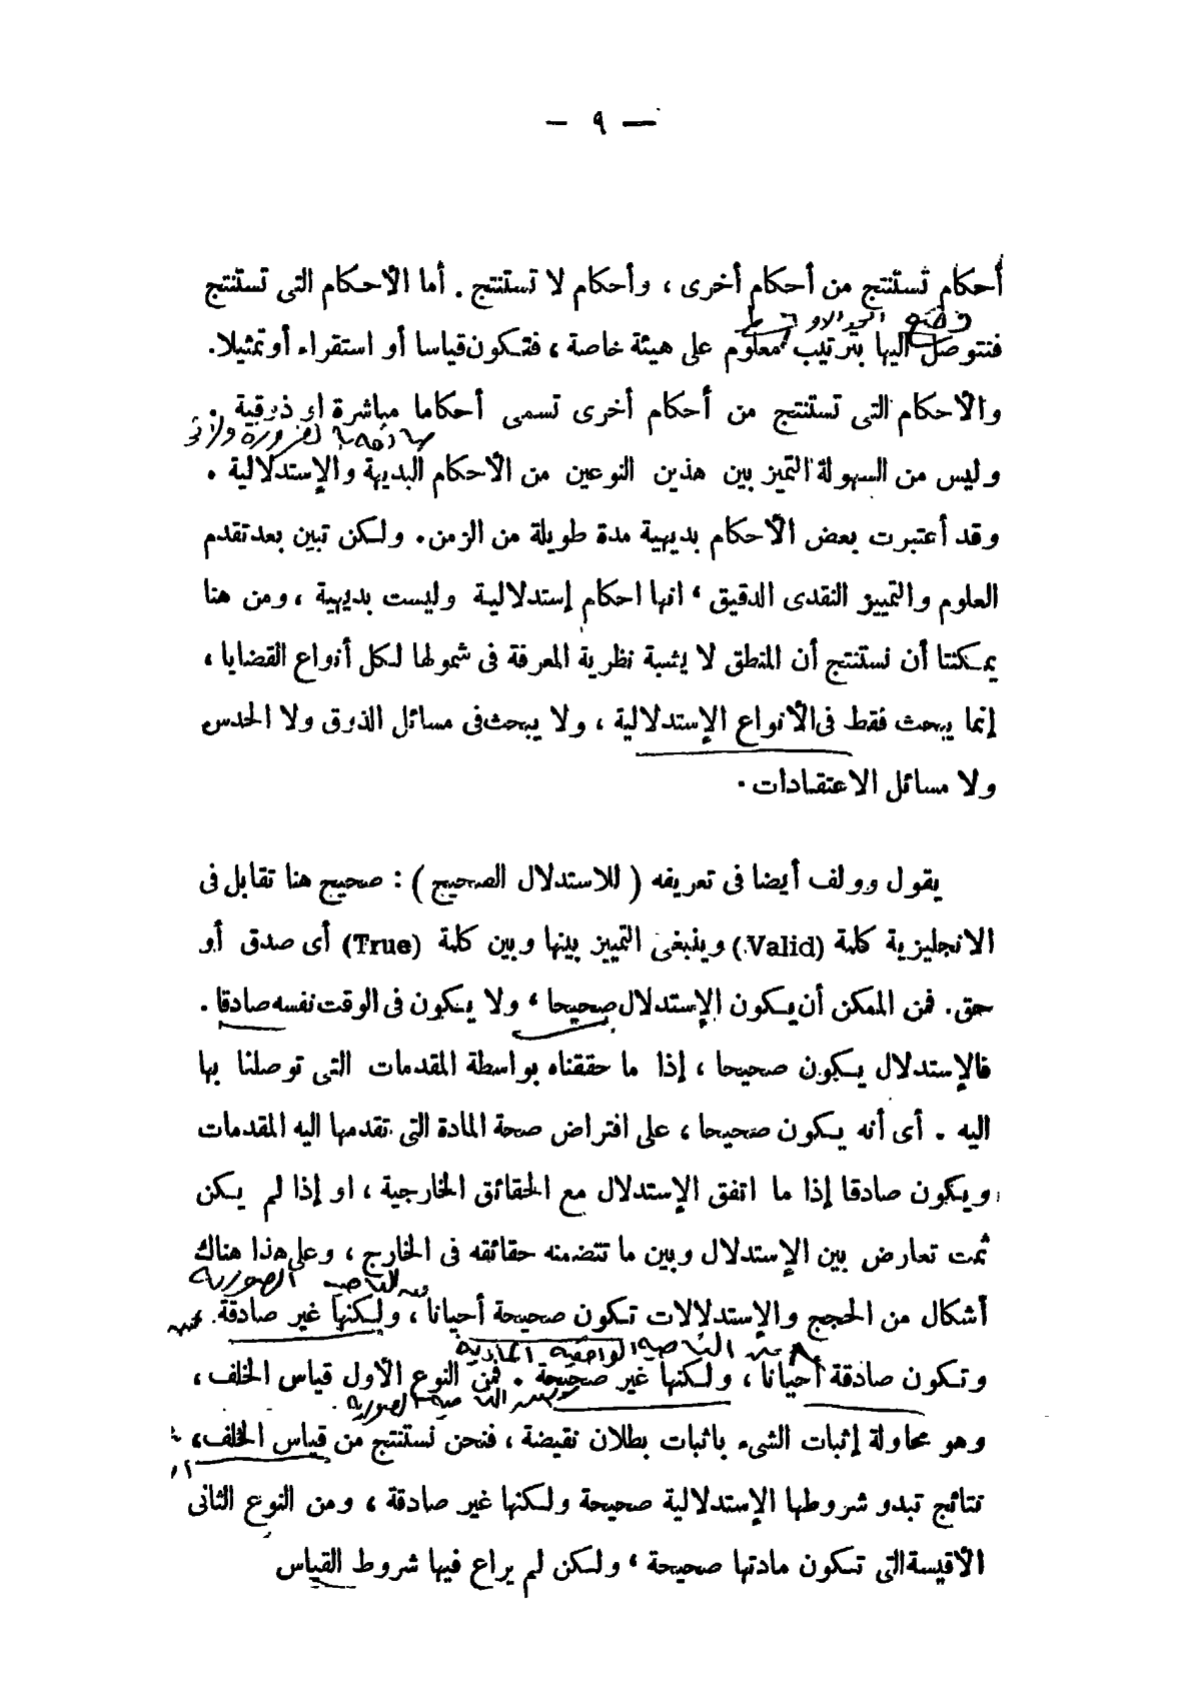 — ٩ —
أحكام تستنتج من أحكام أخرى ، وأحكام لا تستنتج . أما الأحكام التى تستنتج
وضع الحد الاوسط
فنتوصل اليها بترتيب معلوم على هيئة خاصة ، فتكون قياسا أو استقراء أو تمثيلا .
والأحكام التى تستنتج من أحكام أخرى تسمى أحكاما مباشرة او ذوقية .
وليس من السهولة التميز بين هذين النوعين من الأحكام البديهة والإستدلالية .
وقد أعتبرت بعض الأحكام بديهية مدة طويلة من الزمن . ولكن تبين بعد تقدم
العلوم والتمييز النقدى الدقيق ، انها احكام إستدلالية وليست بديهية ، ومن هنا
يمكننا أن نستنتج أن المنطق لا يشبة نظرية المعرفة فى شمولها لكل أنواع القضايا ،
إنما يبحث فقط فى الأنواع الإستدلالية ، ولا يبحث فى مسائل الذوق ولا الحدس
ولا مسائل الاعتقادات .
يقول وولف أيضا فى تعريفه ( للاستدلال الصحيح ) : صحيح هنا تقابل فى
الانجليزية كلمة (Valid) وينبغى التمييز بينها وبين كلمة (True) أى صدق أو
حق . فمن الممكن أن يكون الإستدلال صحيحا ، ولا يكون فى الوقت نفسه صادقا .
فالإستدلال يكون صحيحا ، إذا ما حققناه بواسطة المقدمات التى توصلنا بها
اليه . أى أنه يكون صحيحا ، على افتراض صحة المادة التى تقدمها اليه المقدمات
ويكون صادقا إذا ما اتفق الإستدلال مع الحقائق الخارجية ، او إذا لم يكن
ثمت تعارض بين الإستدلال وبين ما تتضمنه حقائقه فى الخارج ، وعلى هذا هناك
من الناحية الصورية
أشكال من الحجج والإستدلالات تكون صحيحة أحيانا ، ولكنها غير صادقة .
من الناحية الواقعية المادية
وتكون صادقة أحيانا ، ولكنها غير صحيحة . فمن النوع الأول قياس الخلف ،
من الناحية الصورية
وهو محاولة إثبات الشىء باثبات بطلان نقيضة ، فنحن نستنتج من قياس الخلف ،
نتائج تبدو شروطها الإستدلالية صحيحة ولكنها غير صادقة ، ومن النوع الثانى
الأقيسة التى تكون مادتها صحيحة ، ولكن لم يراع فيها شروط القياس